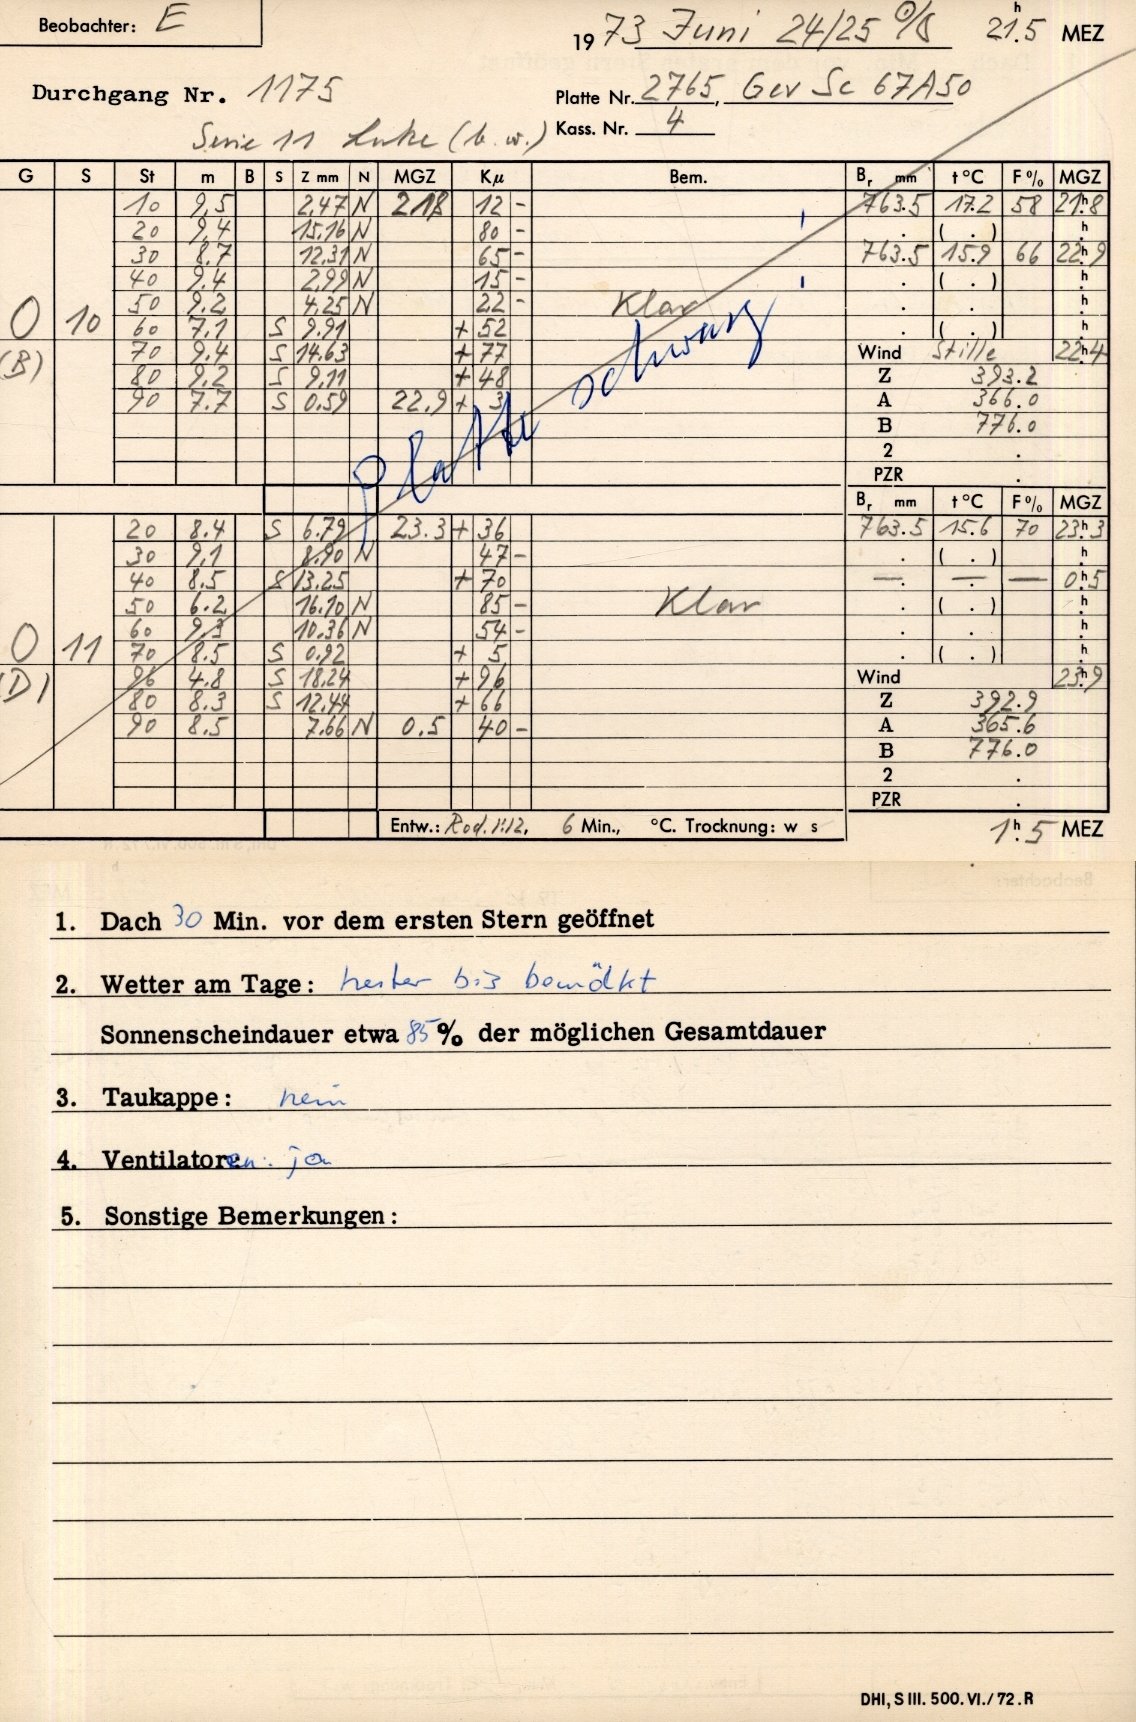 Beobachter: E
1973 Juni 24/25 21h.5 MEZ
Durchgang Nr. 1175
Platte Nr. 2765, Gev Sc 67A50
Serie 11 Luke (b. w.) Kass. Nr. 4
G S St m B S Z mm N MGZ Kμ Bem. Br mm t°C F% MGZ
10 9,5 2,47 N 21,8 12 - 763.5 17.2 58 21h8
20 9,4 15,16 N 80 - . ( . ) h
30 8.7 12,31 N 65 - 763.5 15.9 66 22h9
40 9.4 2,99 N 15 - . ( . ) h
50 9.2 4,25 N 22 - Klar . . h
O 10 60 7.1 S 9.91 + 52 . ( . ) h
(B) 70 9.4 S 14.63 + 77 Wind Stille 22h4
80 9.2 S 9,11 + 48 Z 393.2
90 7.7 S 0,59 22,9 + 3 A 366.0
B 776.0
2 .
PZR .
Platte schwarz
Br mm t°C F% MGZ
20 8.4 S 6.79 23.3 + 36 763.5 15.6 70 23h3
30 9,1 8.90 N 47 - . ( . ) h
40 8.5 S 13.25 + 70 — — — 0h5
50 6.2 16,10 N 85 - Klar . ( . ) h
60 9,3 10.36 N 54 - . . h
O 11 70 8.5 S 0,92 + 5 . ( . ) h
(D) 96 4.8 S 18,24 + 96 Wind 23h9
80 8.3 S 12,44 + 66 Z 392.9
90 8.5 7.66 N 0.5 40 - A 365.6
B 776.0
2 .
PZR .
Entw.: Rod. 1:12, 6 Min., °C. Trocknung: w s 1h.5 MEZ
1. Dach 30 Min. vor dem ersten Stern geöffnet
2. Wetter am Tage: heiter bis bewölkt
Sonnenscheindauer etwa 85% der möglichen Gesamtdauer
3. Taukappe: nein
4. Ventilatoren: ja
5. Sonstige Bemerkungen:
DHI, S III. 500. VI./72.R